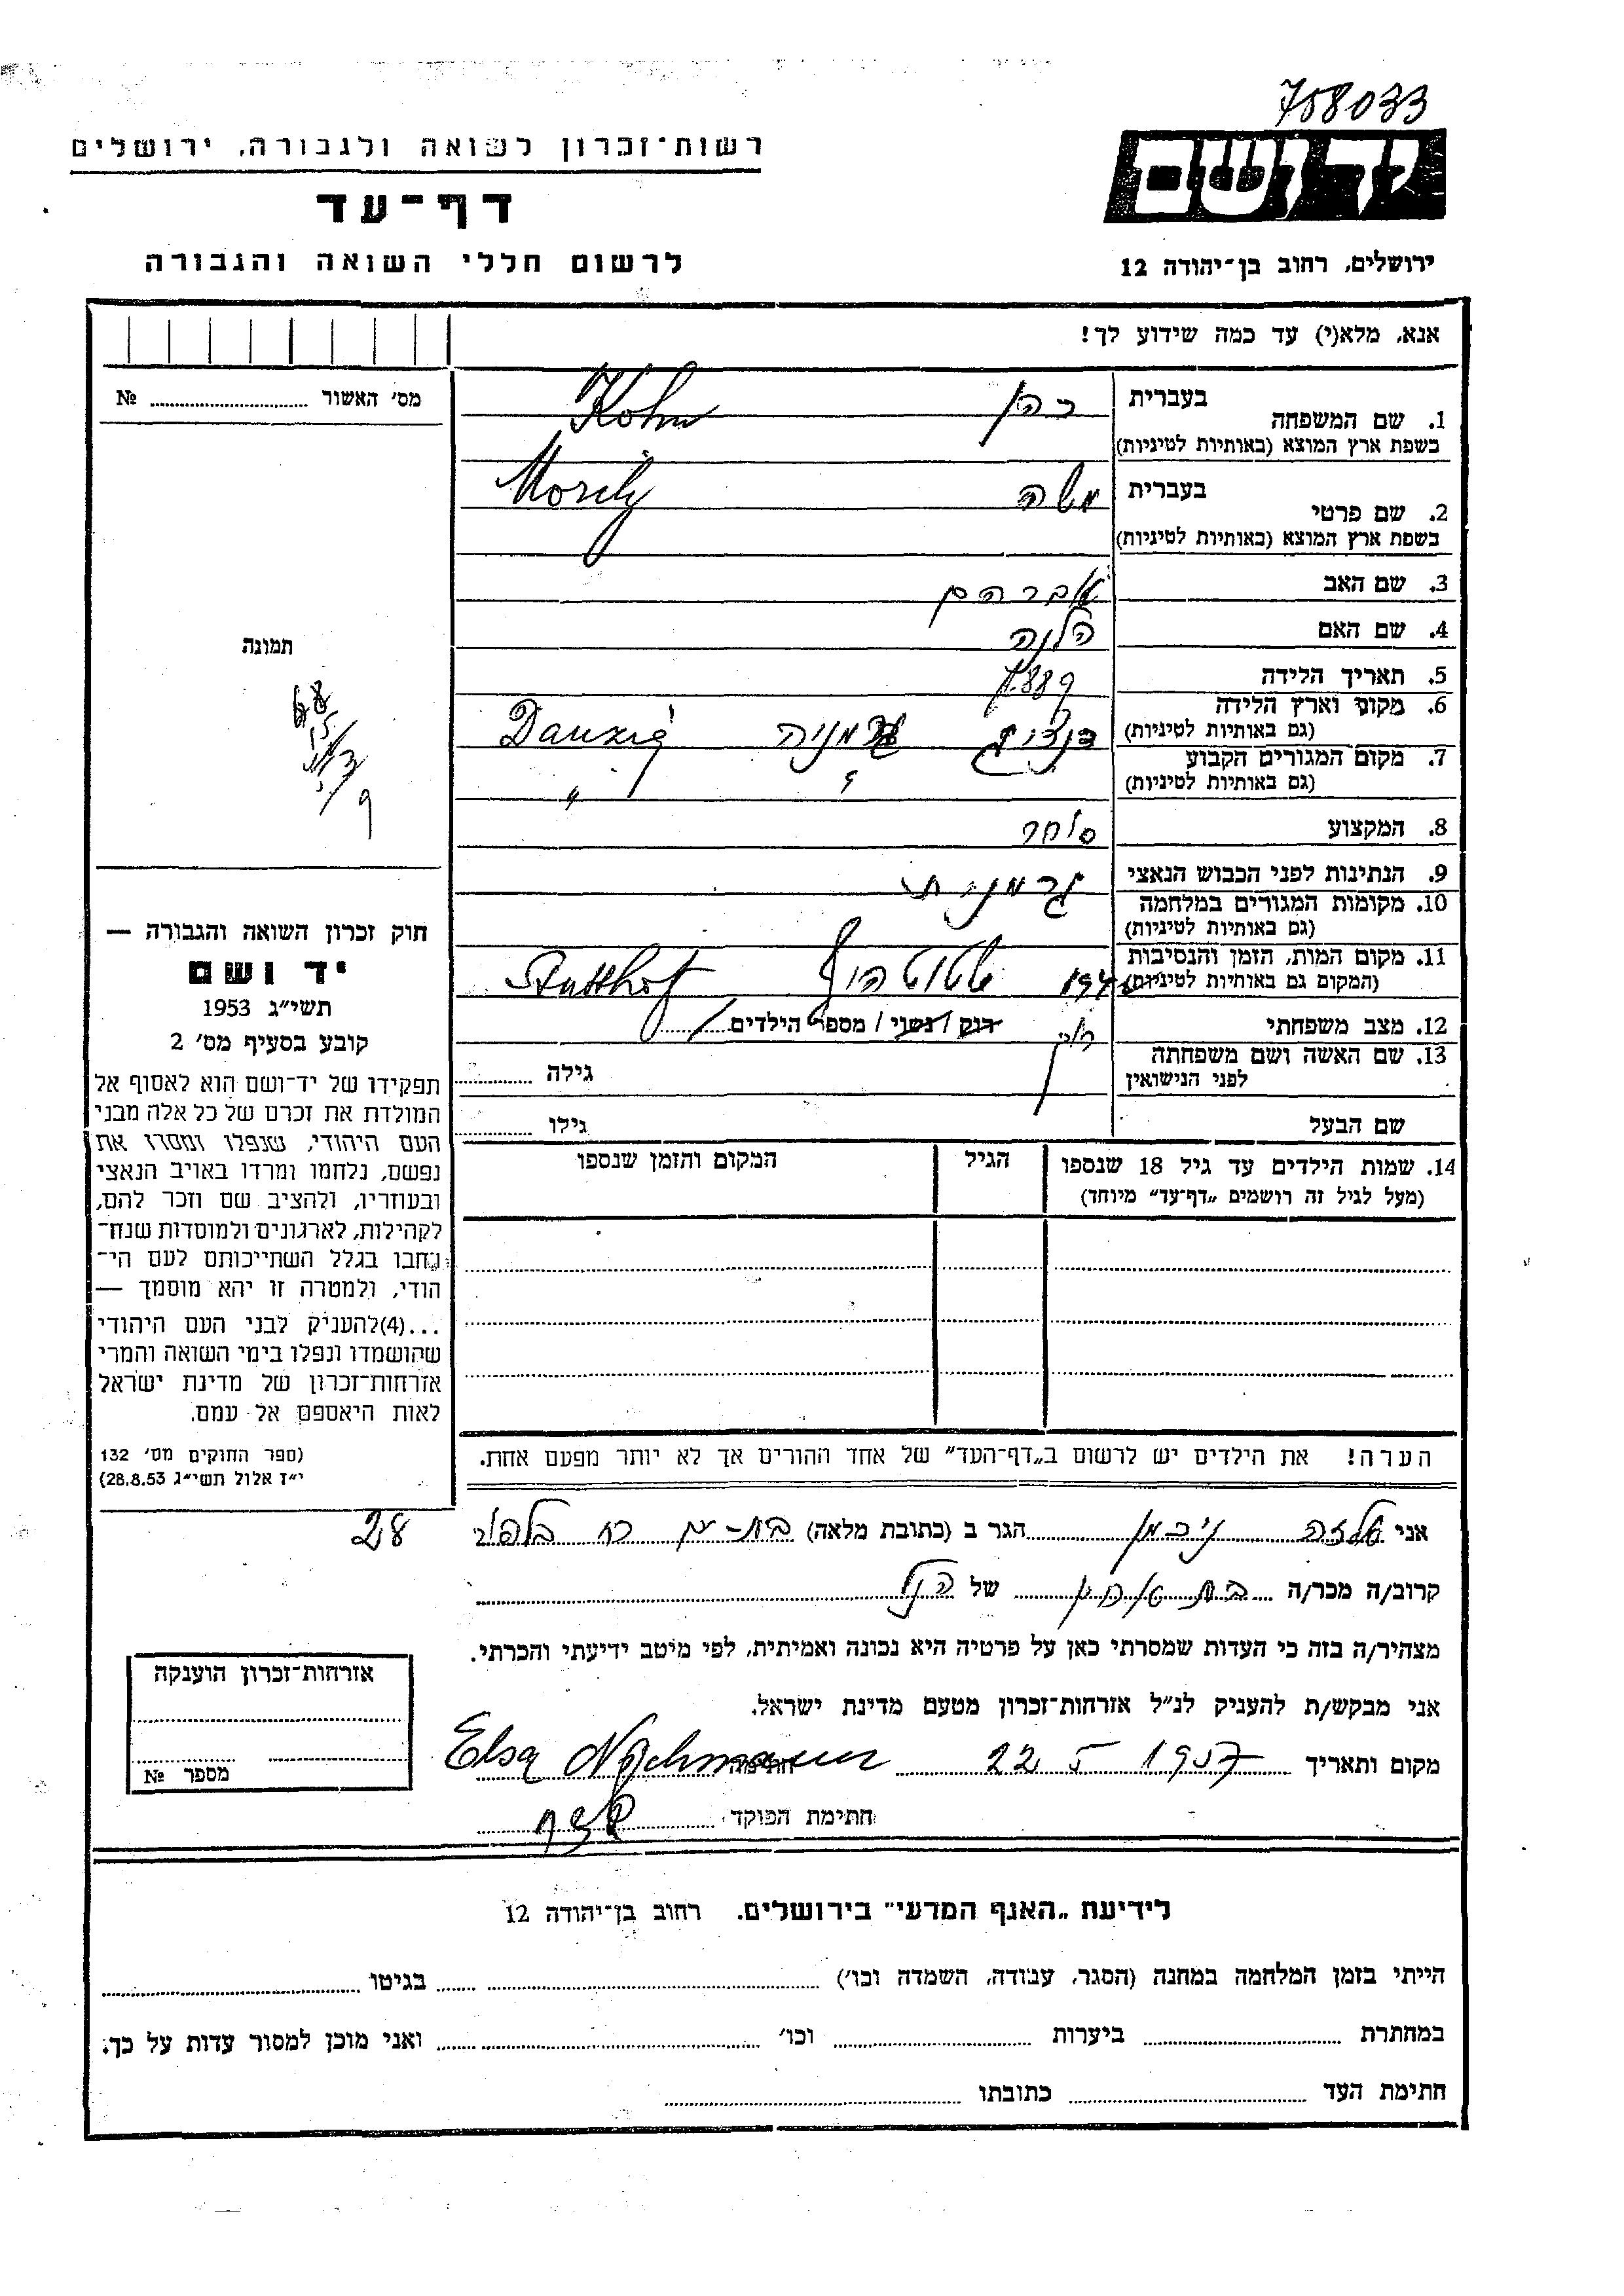 708033
רשות־זכרון לשואה ולגבורה, ירושלים
יד ושם
דף־עד
לרשום חללי השואה והגבורה
ירושלים, רחוב בן־יהודה 12
אנא, מלא(י) עד כמה שידוע לך!
מס׳ האשור № ........
1. שם המשפחה בעברית כהן Kohn
בשפת ארץ המוצא (באותיות לטיניות)
2. שם פרטי בעברית משה
בשפת ארץ המוצא (באותיות לטיניות)
3. שם האב אברהם
4. שם האם הלנה
5. תאריך הלידה 1889
6. מקום וארץ הלידה דנציג גרמניה Danzig
(גם באותיות לטיניות)
7. מקום המגורים הקבוע " "
(גם באותיות לטיניות)
8. המקצוע סוחר
9. הנתינות לפני הכבוש הנאצי גרמנית
10. מקומות המגורים במלחמה
(גם באותיות לטיניות)
11. מקום המות, הזמן והנסיבות שטוטהוף Stutthof
(המקום גם באותיות לטיניות)
12. מצב משפחתי רוק / נשוי / מספר הילדים
13. שם האשה ושם משפחתה גילה
לפני הנישואין
שם הבעל גילו
14. שמות הילדים עד גיל 18 שנספו הגיל המקום והזמן שנספו
(מעל לגיל זה רושמים „דף־עד״ מיוחד)
הערה! את הילדים יש לרשום ב„דף־העד״ של אחד ההורים אך לא יותר מפעם אחת.
תמונה
חוק זכרון השואה והגבורה —
יד ושם
תשי״ג 1953
קובע בסעיף מס׳ 2
תפקידו של יד־ושם הוא לאסוף אל
המולדת את זכרם של כל אלה מבני
העם היהודי, שנפלו ומסרו את
נפשם, נלחמו ומרדו באויב הנאצי
ובעוזריו, ולהציב שם וזכר להם,
לקהילות, לארגונים ולמוסדות שנח־
רבו בגלל השתייכותם לעם הי־
הודי, ולמטרה זו יהא מוסמך —
...(4)להעניק לבני העם היהודי
שהושמדו ונפלו בימי השואה והמרי
אזרחות־זכרון של מדינת ישראל
לאות היאספם אל עמם.
(ספר החוקים מס׳ 132
י״ז אלול תשי״ג 28.8.53)
אני אלזה נכמן הגר ב (כתובת מלאה) בת-ים רח בלפור 28
קרוב/ה מכר/ה של הנ״ל
מצהיר/ה בזה כי העדות שמסרתי כאן על פרטיה היא נכונה ואמיתית, לפי מיטב ידיעתי והכרתי.
אני מבקש/ת להעניק לנ״ל אזרחות־זכרון מטעם מדינת ישראל.
מקום ותאריך 22 5 1957 חתימה Elsa Nachmann
חתימת הפוקד
אזרחות־זכרון הוענקה
מספר №
לידיעת „האגף המדעי״ בירושלים. רחוב בן־יהודה 12
הייתי בזמן המלחמה במחנה (הסגר, עבודה, השמדה וכו׳) ........ בגיטו ........
במחתרת ........ ביערות ........ וכו׳ ........ ואני מוכן למסור עדות על כך.
חתימת העד ........ כתובתו ........